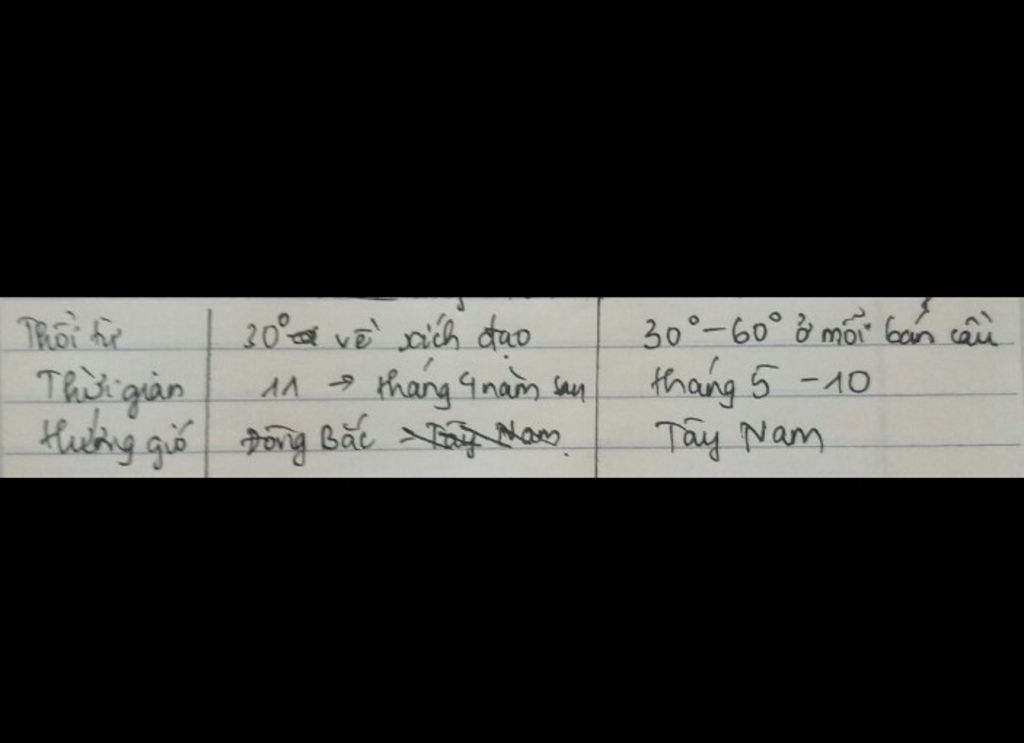 Thổi từ 30° về xích đạo 30° - 60° ở mỗi bán cầu
Thời gian 11 → tháng 4 năm sau tháng 5 - 10
Hướng gió Đông Bắc Tây Nam Tây Nam